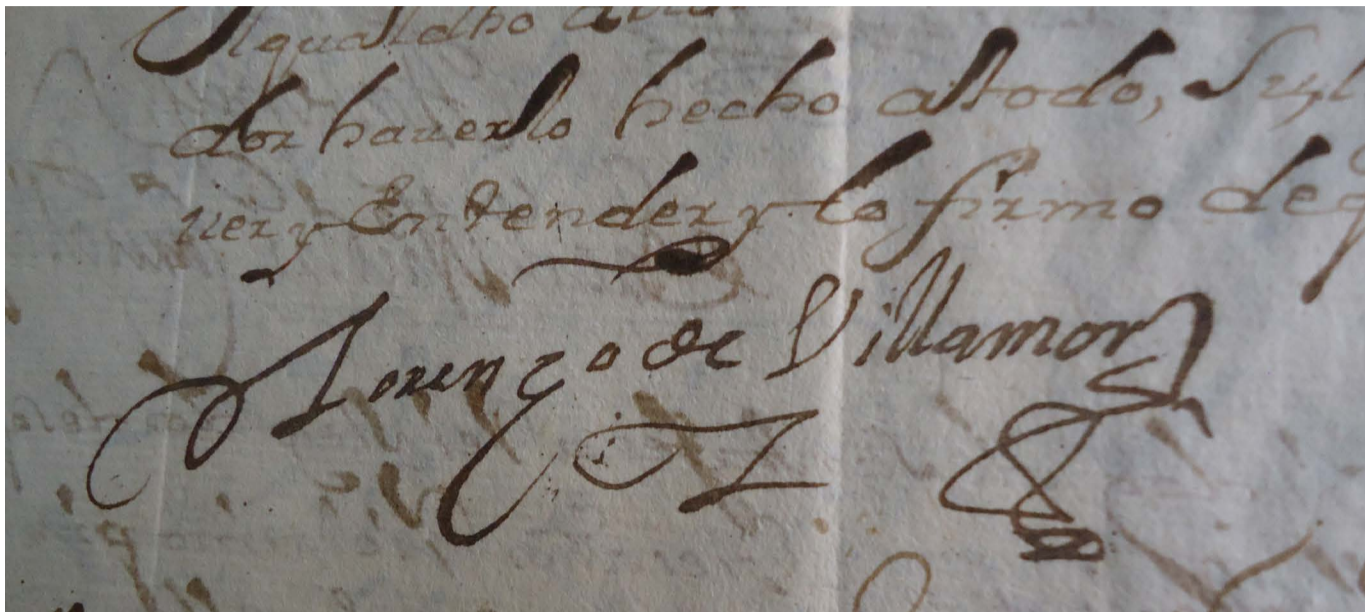 Igual dho
dor haverlo hecho a todo, Su
ver y Entender y lo firmo de
Lorenzo de Villamor